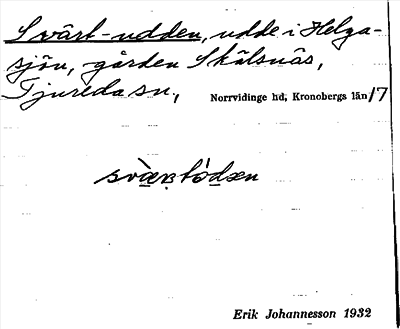 Svärt-udden, udde i Helga-
sjön, gården Skälsnäs,
Tjureda sn., Norrvidinge hd, Kronobergs län/7
Erik Johannesson 1932